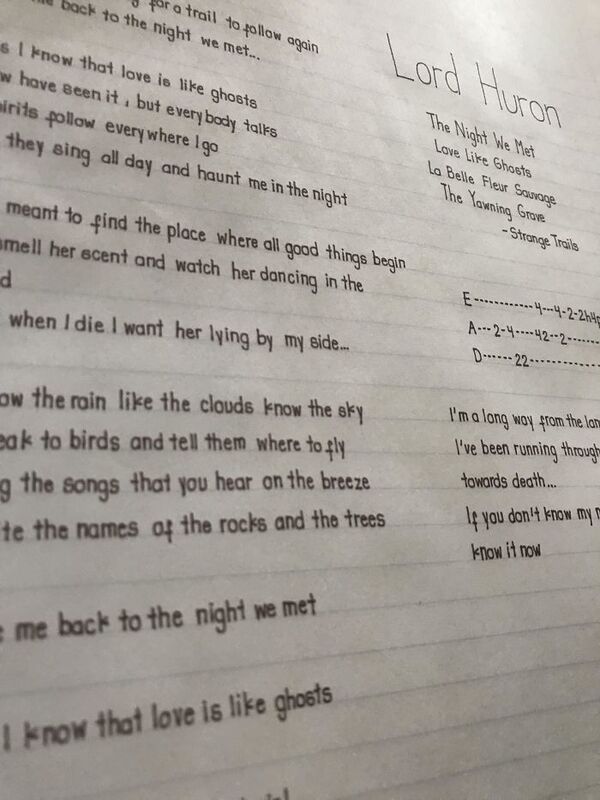 for a trail to follow again
back to the night we met...
I know that love is like ghosts
have seen it, but everybody talks
follow everywhere I go
they sing all day and haunt me in the night
meant to find the place where all good things begin
smell her scent and watch her dancing in the
when I die I want her lying by my side...
the rain like the clouds know the sky
to birds and tell them where to fly
the songs that you hear on the breeze
the names of the rocks and the trees
me back to the night we met
I know that love is like ghosts
Lord Huron
The Night We Met
Love Like Ghosts
La Belle Fleur Sauvage
The Yawning Grove
-Strange Trails
E------------4---4-2-2h4p
A---2-4-----42--2-------
D------22------------
I'm a long way from the
I've been running through
towards death...
If you don't know my
know it now